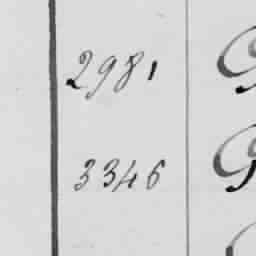 2981
3346